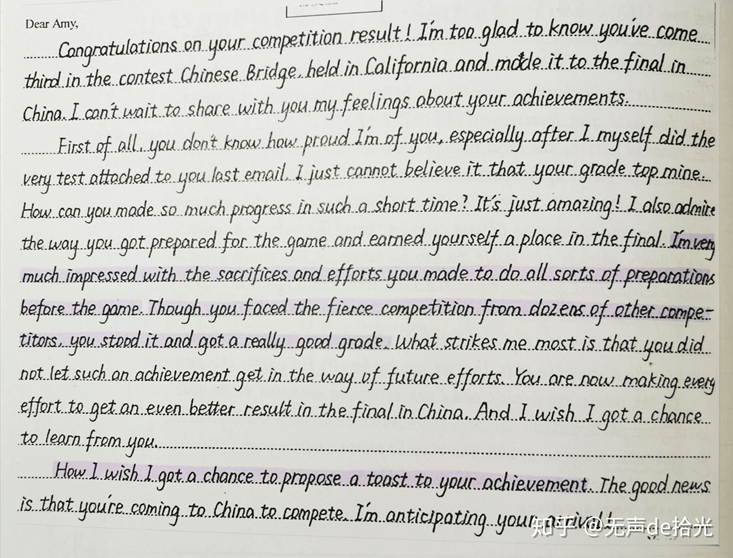 Dear Amy,
Congratulations on your competition result! I'm too glad to know you've come
third in the contest Chinese Bridge, held in California and made it to the final in
China. I can't wait to share with you my feelings about your achievements.
First of all, you don't know how proud I'm of you, especially after I myself did the
very test attached to you last email. I just cannot believe it that your grade top mine.
How can you made so much progress in such a short time? It's just amazing! I also admire
the way you got prepared for the game and earned yourself a place in the final. I'm very
much impressed with the sacrifices and efforts you made to do all sorts of preparations
before the game. Though you faced the fierce competition from dozens of other compe-
titors, you stood it and got a really good grade. What strikes me most is that you did
not let such an achievement get in the way of future efforts. You are now making every
effort to get an even better result in the final in China. And I wish I got a chance
to learn from you.
How I wish I got a chance to propose a toast to your achievement. The good news
is that you're coming to China to compete. I'm anticipating your arrival!
知乎 @无声de拾光